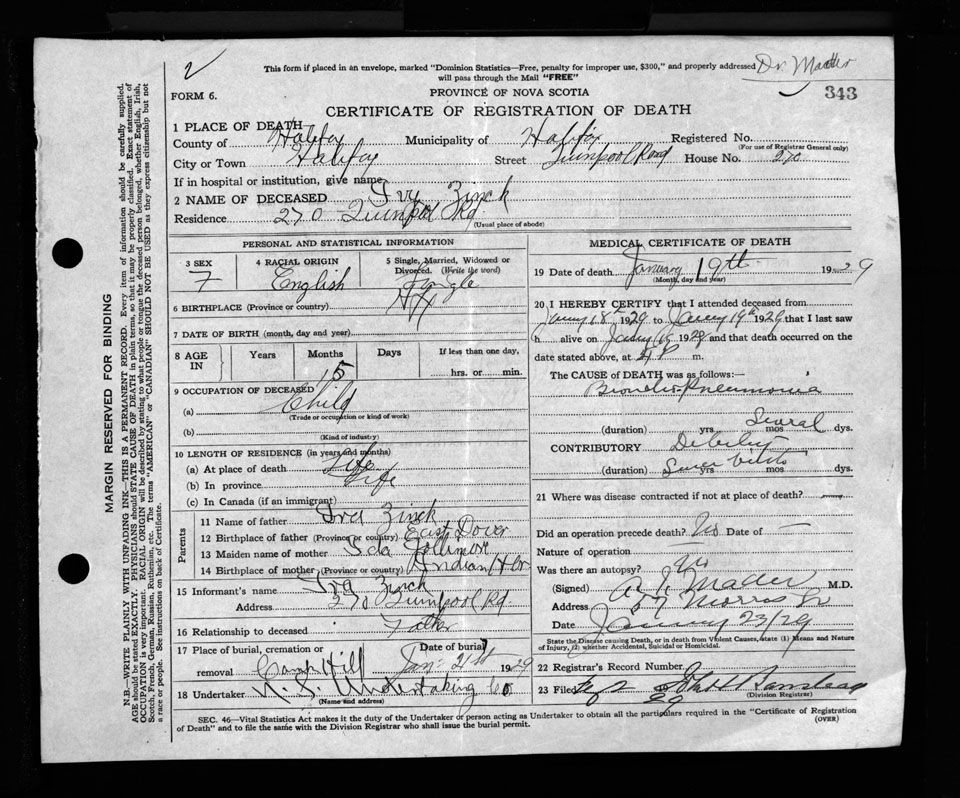 2
This form if placed in an envelope, marked "Dominion Statistics—Free, penalty for improper use, $300," and properly addressed Dr. Mader
will pass through the Mail "FREE"
FORM 6.
PROVINCE OF NOVA SCOTIA
343
CERTIFICATE OF REGISTRATION OF DEATH
1 PLACE OF DEATH
County of Halifax Municipality of Halifax Registered No.
(For use of Registrar General only)
City or Town Halifax Street Quinpool Road House No. 270
If in hospital or institution, give name
2 NAME OF DECEASED Ivy Zinck
Residence 270 Quinpool Rd
(Usual place of abode)
PERSONAL AND STATISTICAL INFORMATION
3 SEX 4 RACIAL ORIGIN 5 Single, Married, Widowed or
Divorced. (Write the word)
F English Single
6 BIRTHPLACE (Province or country) Hfx
7 DATE OF BIRTH (month, day and year)
8 AGE IN Years Months Days If less than one day,
15 hrs. or min.
9 OCCUPATION OF DECEASED
(a) Child
(Trade or occupation or kind of work)
(b)
(Kind of industry)
10 LENGTH OF RESIDENCE (in years and months)
(a) At place of death Life
(b) In province Life
(c) In Canada (if an immigrant)
Parents
11 Name of father Ira Zinck
12 Birthplace of father (Province or country) East Dover
13 Maiden name of mother Ida Gollimore
14 Birthplace of mother (Province or country) Indian Hbr
15 Informant's name Ira Zinck
Address 270 Quinpool Rd
16 Relationship to deceased Father
17 Place of burial, cremation or removal Camp Hill
Date of burial Jan 21st 1929
18 Undertaker N.S. Undertaking Co
(Name and address)
MEDICAL CERTIFICATE OF DEATH
19 Date of death January 19th 1929
(Month, day and year)
20 I HEREBY CERTIFY that I attended deceased from
18th 1929 to 19th 1929 that I last saw
h alive on 19 1929 and that death occurred on the
date stated above, at m.
The CAUSE of DEATH was as follows:—
Broncho-Pneumonia
(duration) yrs mos Several dys.
CONTRIBUTORY Debility
(duration) since birth yrs mos dys.
21 Where was disease contracted if not at place of death?
Did an operation precede death? No Date of —
Nature of operation
Was there an autopsy? No
(Signed) Mader M.D.
Address 57 Morris St
Date January 23/29
State the Disease causing Death, or in death from Violent Causes, state (1) Means and Nature
of Injury, (2) whether Accidental, Suicidal or Homicidal.
22 Registrar's Record Number
23 Filed 19 29
(Division Registrar)
SEC. 46—Vital Statistics Act makes it the duty of the Undertaker or person acting as Undertaker to obtain all the particulars required in the "Certificate of Registration
of Death" and to file the same with the Division Registrar who shall issue the burial permit.
(OVER)
MARGIN RESERVED FOR BINDING
N.B.—WRITE PLAINLY WITH UNFADING INK—THIS IS A PERMANENT RECORD. Every item of information should be carefully supplied.
AGE should be stated EXACTLY. PHYSICIANS should STATE CAUSE OF DEATH in plain terms, so that it may be properly classified. Exact statement of
OCCUPATION is very important. RACIAL ORIGIN will be described by stating to what people or tongue the deceased person belonged, whether English, Irish,
Scotch, French, German, Russian, Ruthenian, etc. The terms "AMERICAN" or "CANADIAN" SHOULD NOT BE USED as they express citizenship but not
a race or people. See instructions on back of Certificate.